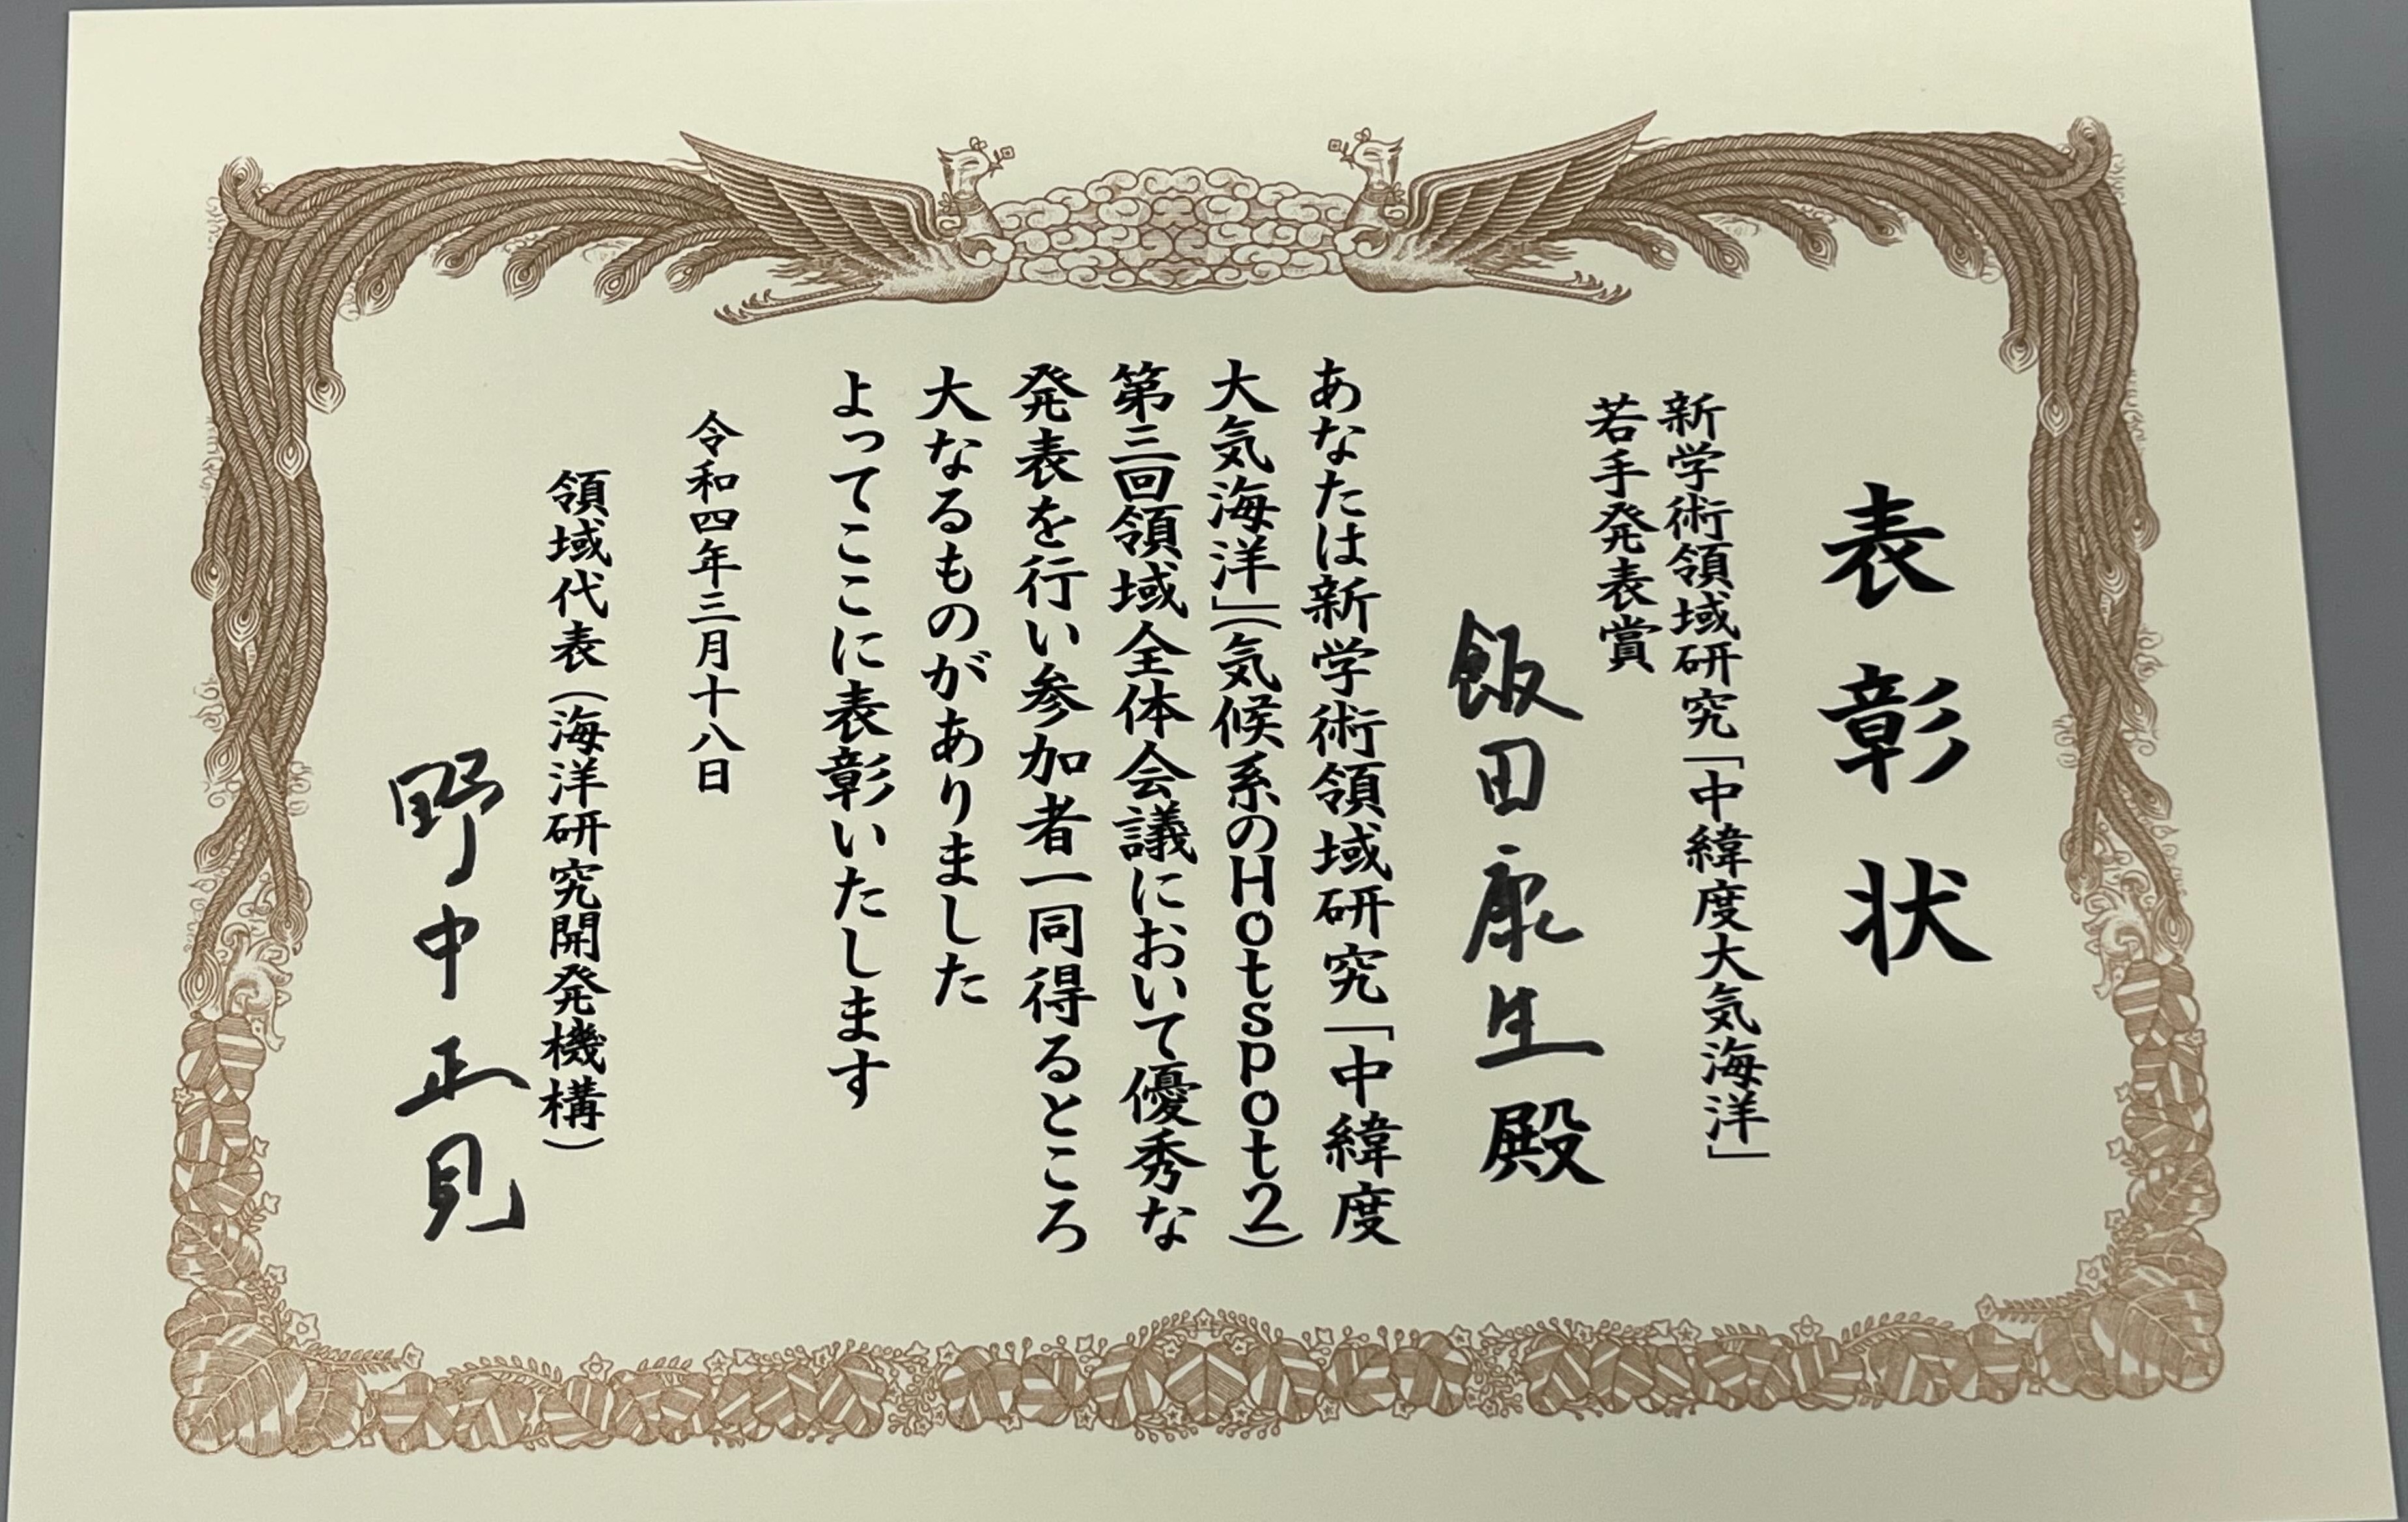 表彰状
新学術領域研究「中緯度大気海洋」
若手発表賞
飯田康生殿
あなたは新学術領域研究「中緯度
大気海洋」(気候系のHotspot2)
第三回領域全体会議において優秀な
発表を行い参加者一同得るところ
大なるものがありました
よってここに表彰いたします
令和四年三月十八日
領域代表(海洋研究開発機構)
野中正見